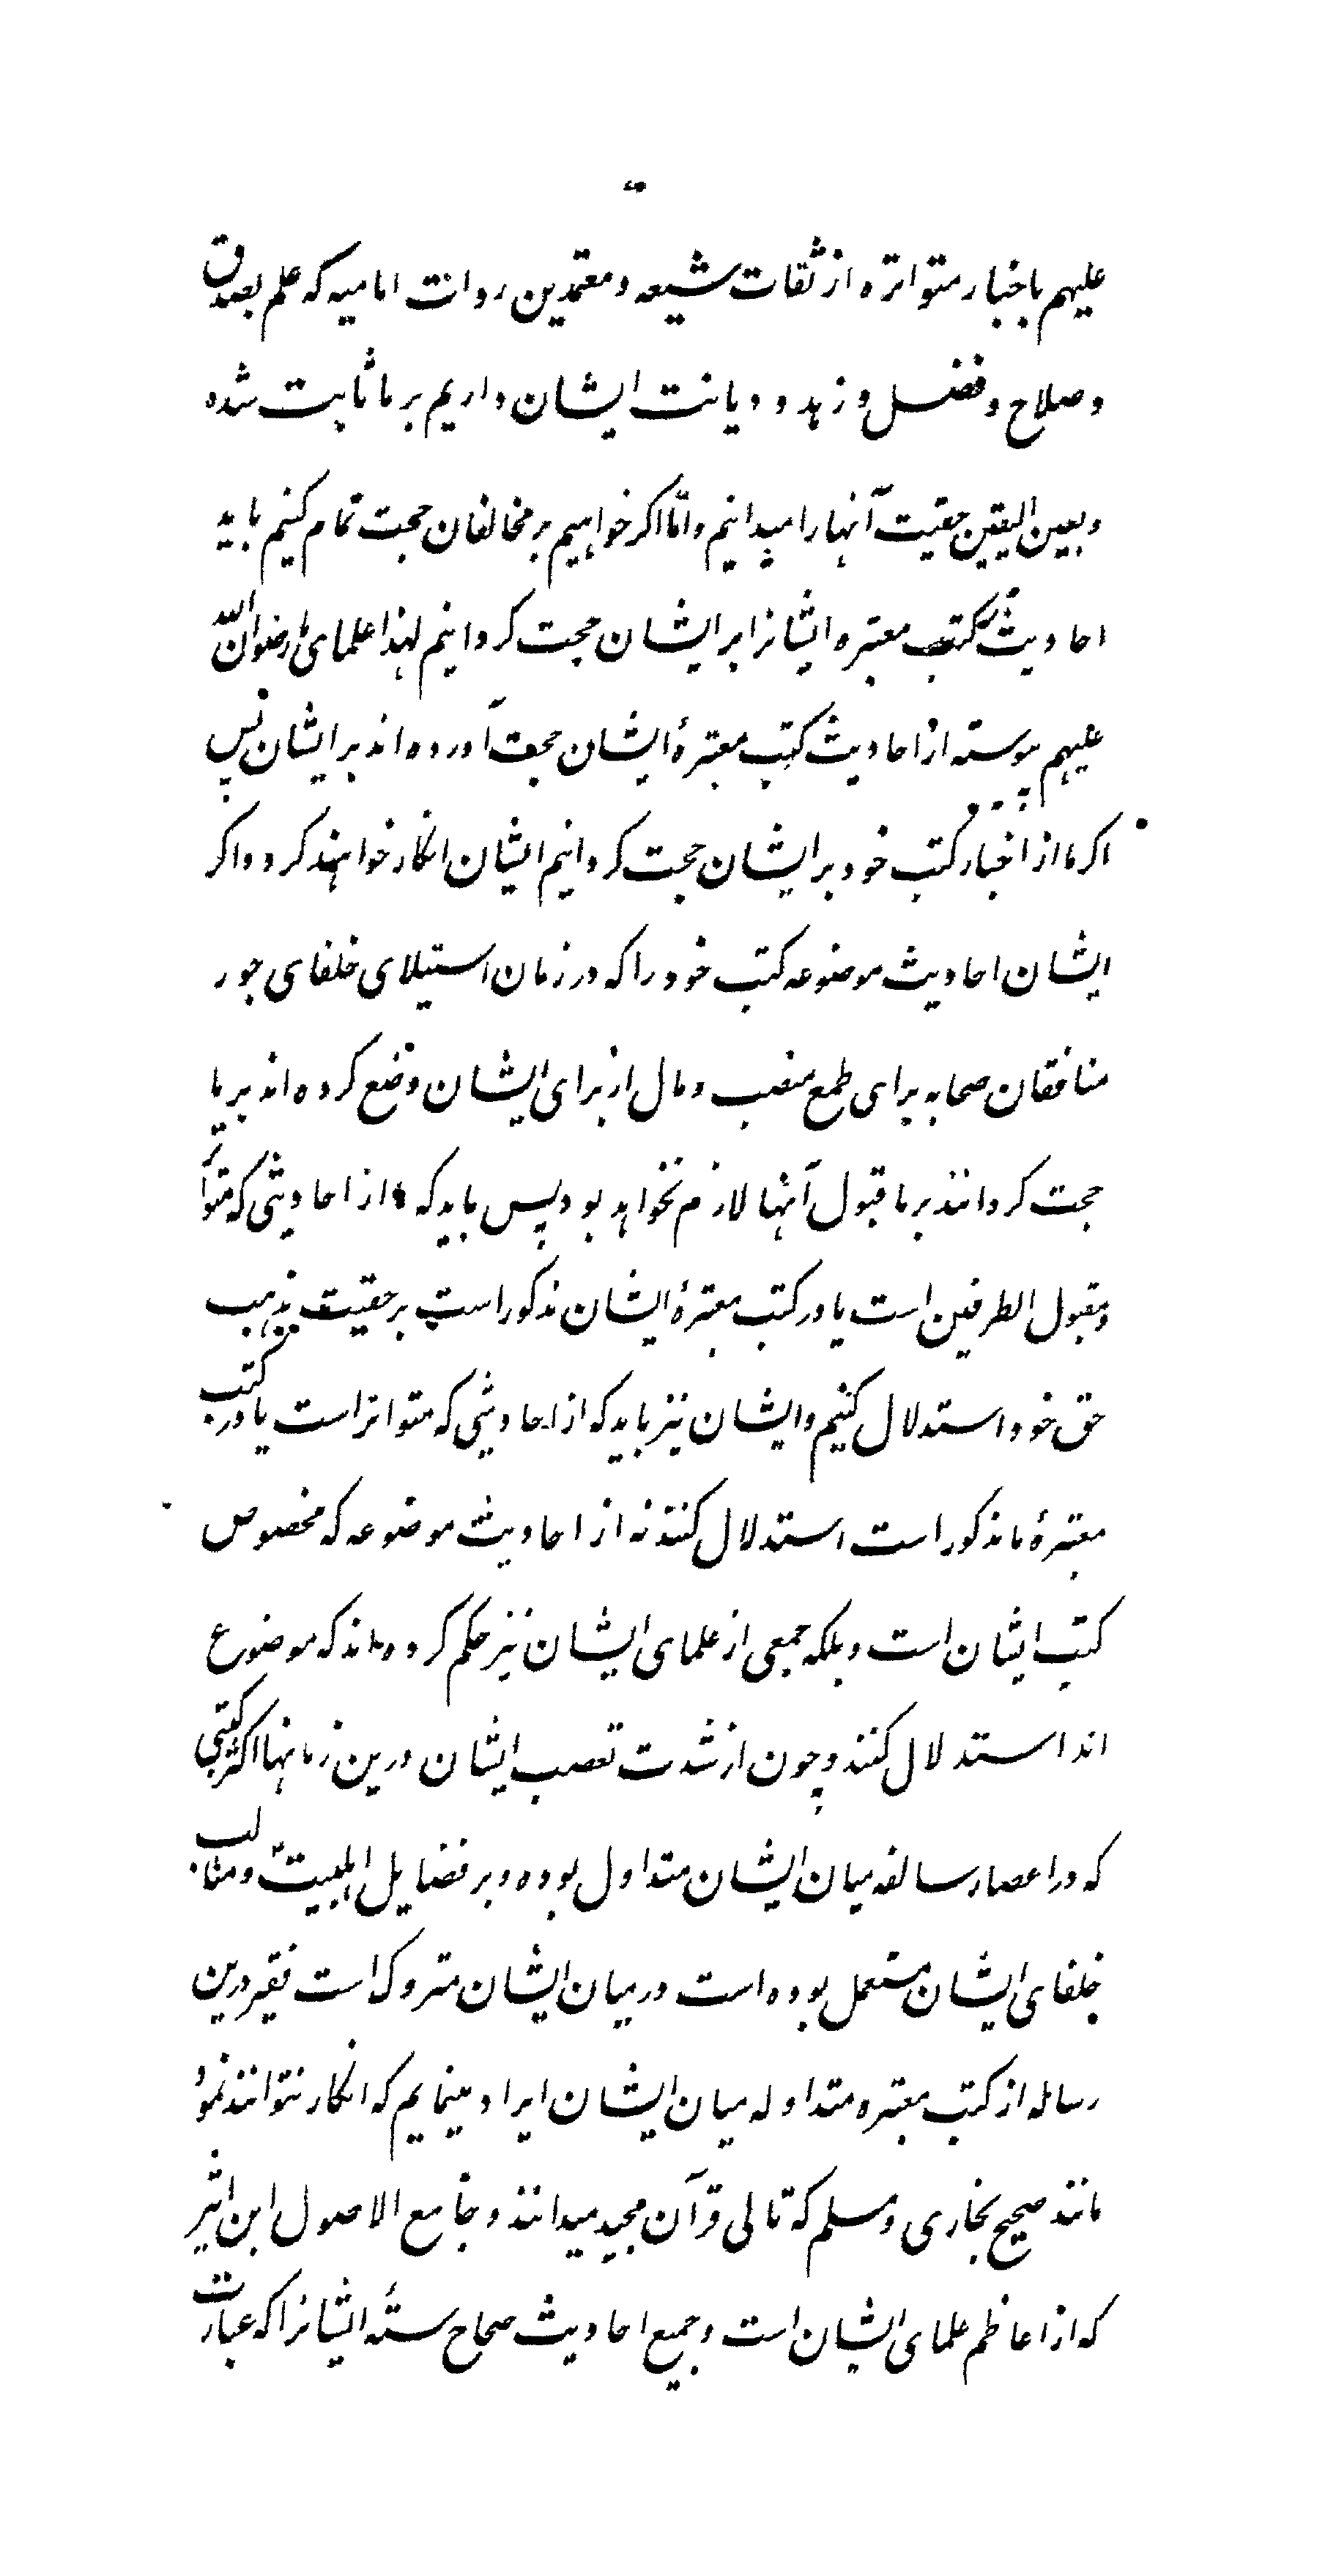 علیهم باخبار متواتره از ثقات شیعه و معتمدین روات امامیه که علم بصدق
و صلاح و فضل و زهد و دیانت ایشان داریم بر ما ثابت شده
و بعین الیقین حقیت آنها را میدانیم و امّا اکر خواهیم بر مخالفان حجت تمام کنیم باید
احادیث کتب معتبره ایشانرا بر ایشان حجت کردانیم لهذا علمای ما رضوان الله
علیهم پیوسته از احادیث کتب معتبرهٔ ایشان حجت آورده اند بر ایشان پس
اکر ما از اخبار کتب خود بر ایشان حجت کردانیم ایشان انکار خواهند کرد و اکر
ایشان احادیث موضوعه کتب خود را که در زمان استیلای خلفای جور
منافقان صحابه برای طمع منصب و مال از برای ایشان وضع کرده اند بر ما
حجت کردانند بر ما قبول آنها لازم نخواهد بود پس باید که ما از احادیثی که متواتر
و مقبول الطرفین است یا در کتب معتبرهٔ ایشان مذکور است بر حقیت مذهب
حق خود استدلال کنیم و ایشان نیز باید که از احادیثی که متواتر است یا در کتب
معتبرهٔ ما مذکور است استدلال کنند نه از احادیث موضوعه که مخصوص
کتب ایشان است و بلکه جمعی از علمای ایشان نیز حکم کرده اند که موضوع
اند استدلال کنند و چون از شدت تعصب ایشان درین زمانها اکثر کتبی
که در اعصار سالفه میان ایشان متداول بوده و بر فضایل اهلبیت و مثالب
خلفای ایشان مشتمل بوده است در میان ایشان متروک است فقیر درین
رساله از کتب معتبره متداوله میان ایشان ایراد مینمایم که انکار نتوانند نمود
مانند صحیح بخاری و مسلم که تالی قرآن مجید میدانند و جامع الاصول ابن اثیر
که از اعاظم علمای ایشان است و جمیع احادیث صحاح ستّهٔ ایشانرا که عبارت